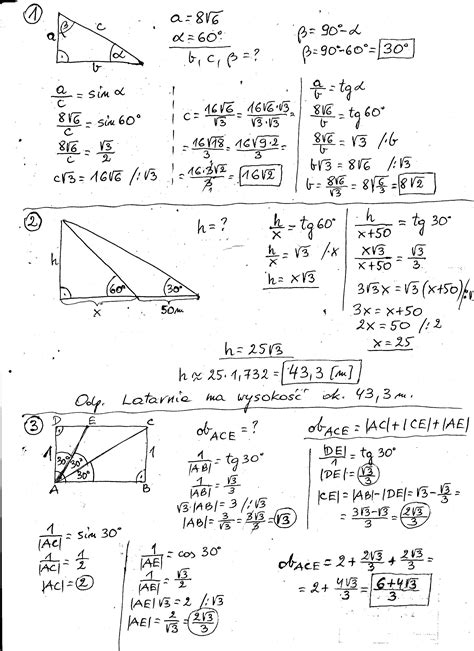 ① a c β α b
a = 8√6
α = 60°
b, c, β = ?
β = 90° - α
β = 90° - 60° = 30°
a/c = sin α
8√6/c = sin 60°
8√6/c = √3/2
c√3 = 16√6 /:√3
c = 16√6/√3 = 16√6·√3/√3·√3 =
= 16√18/3 = 16√9·2/3 =
= 16·3√2/3 = 16√2
a/b = tg α
8√6/b = tg 60°
8√6/b = √3 /·b
b√3 = 8√6 /:√3
b = 8√6/√3 = 8√6/3 = 8√2
② h 60° 30° x 50m
h = ?
h/x = tg 60°
h/x = √3 /·x
h = x√3
h/x+50 = tg 30°
x√3/x+50 = √3/3
3√3x = √3(x+50) /:√3
3x = x+50
2x = 50 /:2
x = 25
h = 25√3
h ≈ 25·1,732 = 43,3 [m]
Odp. Latarnia ma wysokość ok. 43,3 m.
③ D E C 1 30° 30° 30° 1 A B
obACE = ?
1/|AB| = tg 30°
1/|AB| = √3/3
√3·|AB| = 3 /:√3
|AB| = 3/√3 = 3√3/3 = √3
obACE = |AC| + |CE| + |AE|
|DE|/1 = tg 30°
|DE| = √3/3
|CE| = |AB| - |DE| = √3 - √3/3 =
= 3√3-√3/3 = 2√3/3
1/|AC| = sin 30°
1/|AC| = 1/2
|AC| = 2
1/|AE| = cos 30°
1/|AE| = √3/2
|AE|√3 = 2 /:√3
|AE| = 2/√3 = 2√3/3
obACE = 2 + 2√3/3 + 2√3/3 =
= 2 + 4√3/3 = 6+4√3/3